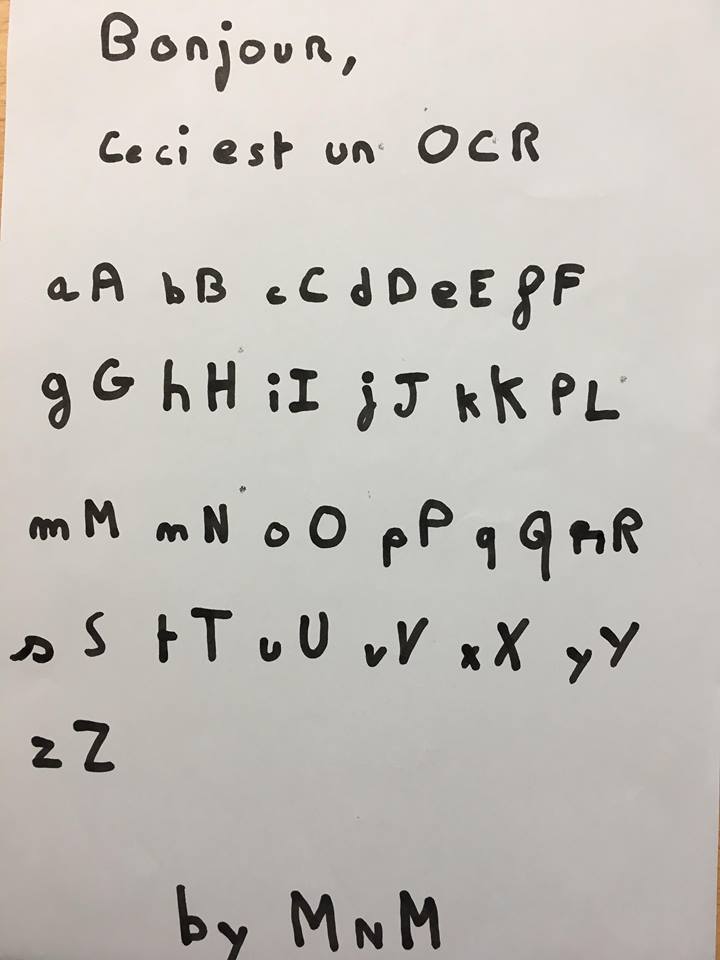 Bonjour,
Ceci est un OCR
aA bB cC dD eE fF
gG hH iI jJ kK lL
mM nN oO pP qQ rR
sS tT uU vV xX yY
zZ
by MNM